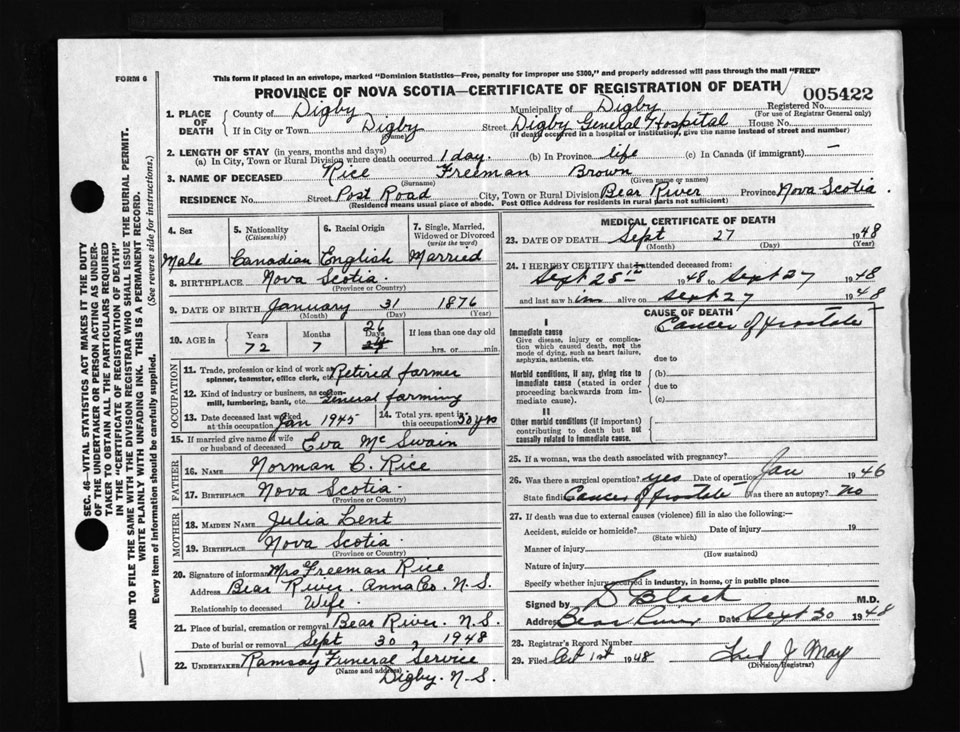 FORM 6
This form if placed in an envelope, marked "Dominion Statistics—Free, penalty for improper use $300," and properly addressed will pass through the mail "FREE"
PROVINCE OF NOVA SCOTIA—CERTIFICATE OF REGISTRATION OF DEATH
005422
1. PLACE OF DEATH County of Digby Municipality of Digby Registered No.
(For use of Registrar General only)
If in City or Town Digby Street Digby General Hospital House No.
(Name) (If death occurred in a hospital or institution, give the name instead of street and number)
2. LENGTH OF STAY (in years, months and days)
(a) In City, Town or Rural Division where death occurred 1 day. (b) In Province life (c) In Canada (if immigrant) —
3. NAME OF DECEASED Rice Freeman Brown
(Surname) (Given name or names)
RESIDENCE No. Street Post Road City, Town or Rural Division Bear River Province Nova Scotia.
(Residence means usual place of abode. Post Office Address for residents in rural parts not sufficient)
4. Sex 5. Nationality (Citizenship) 6. Racial Origin 7. Single, Married, Widowed or Divorced (write the word)
Male Canadian English Married
8. BIRTHPLACE Nova Scotia.
(Province or Country)
9. DATE OF BIRTH January 31 1876
(Month) (Day) (Year)
10. AGE in Years Months Days If less than one day old
72 7 26 hrs. or min.
OCCUPATION
11. Trade, profession or kind of work as spinner, teamster, office clerk, etc. Retired farmer
12. Kind of industry or business, as cotton-mill, lumbering, bank, etc. General farming
13. Date deceased last worked at this occupation Jan 1945 14. Total yrs. spent in this occupation 50 yrs
15. If married give name of wife or husband of deceased Eva McSwain
FATHER
16. NAME Norman C. Rice
17. BIRTHPLACE Nova Scotia.
(Province or Country)
MOTHER
18. MAIDEN NAME Julia Lent
19. BIRTHPLACE Nova Scotia.
(Province or Country)
20. Signature of informant Mrs Freeman Rice
Address Bear River. Anna Co. N.S.
Relationship to deceased Wife.
21. Place of burial, cremation or removal Bear River. N.S.
Date of burial or removal Sept 30, 1948
22. UNDERTAKER Ramsay Funeral Service
(Name and address) Digby. N-S.
MEDICAL CERTIFICATE OF DEATH
23. DATE OF DEATH Sept 27 1948
(Month) (Day) (Year)
24. I HEREBY CERTIFY that I attended deceased from:
Sept 25th 1948 to Sept 27 1948
and last saw him alive on Sept 27 1948
CAUSE OF DEATH
I
Immediate cause Cancer of Prostate
Give disease, injury or complication which caused death, not the mode of dying, such as heart failure, asphyxia, asthenia, etc.
due to
Morbid conditions, if any, giving rise to immediate cause (stated in order proceeding backwards from immediate cause).
(b)
due to
(c)
II
Other morbid conditions (if important) contributing to death but not causally related to immediate cause.
25. If a woman, was the death associated with pregnancy?
26. Was there a surgical operation? yes Date of operation Jan 1946
State findings Cancer of Prostate Was there an autopsy? No
27. If death was due to external causes (violence) fill in also the following:—
Accident, suicide or homicide? Date of injury 19
(State which)
Manner of injury
(How sustained)
Nature of injury
Specify whether injury occurred in industry, in home, or in public place
Signed by Black M.D.
Address Bear River Date Sept 30 1948
28. Registrar's Record Number
29. Filed Oct 1st 1948 Fred J May
(Division Registrar)
SEC. 46—VITAL STATISTICS ACT MAKES IT THE DUTY
OF THE UNDERTAKER OR PERSON ACTING AS UNDER-
TAKER TO OBTAIN ALL THE PARTICULARS REQUIRED
IN THE "CERTIFICATE OF REGISTRATION OF DEATH"
AND TO FILE THE SAME WITH THE DIVISION REGISTRAR WHO SHALL ISSUE THE BURIAL PERMIT.
WRITE PLAINLY WITH UNFADING INK. THIS IS A PERMANENT RECORD.
Every item of information should be carefully supplied. (See reverse side for instructions.)